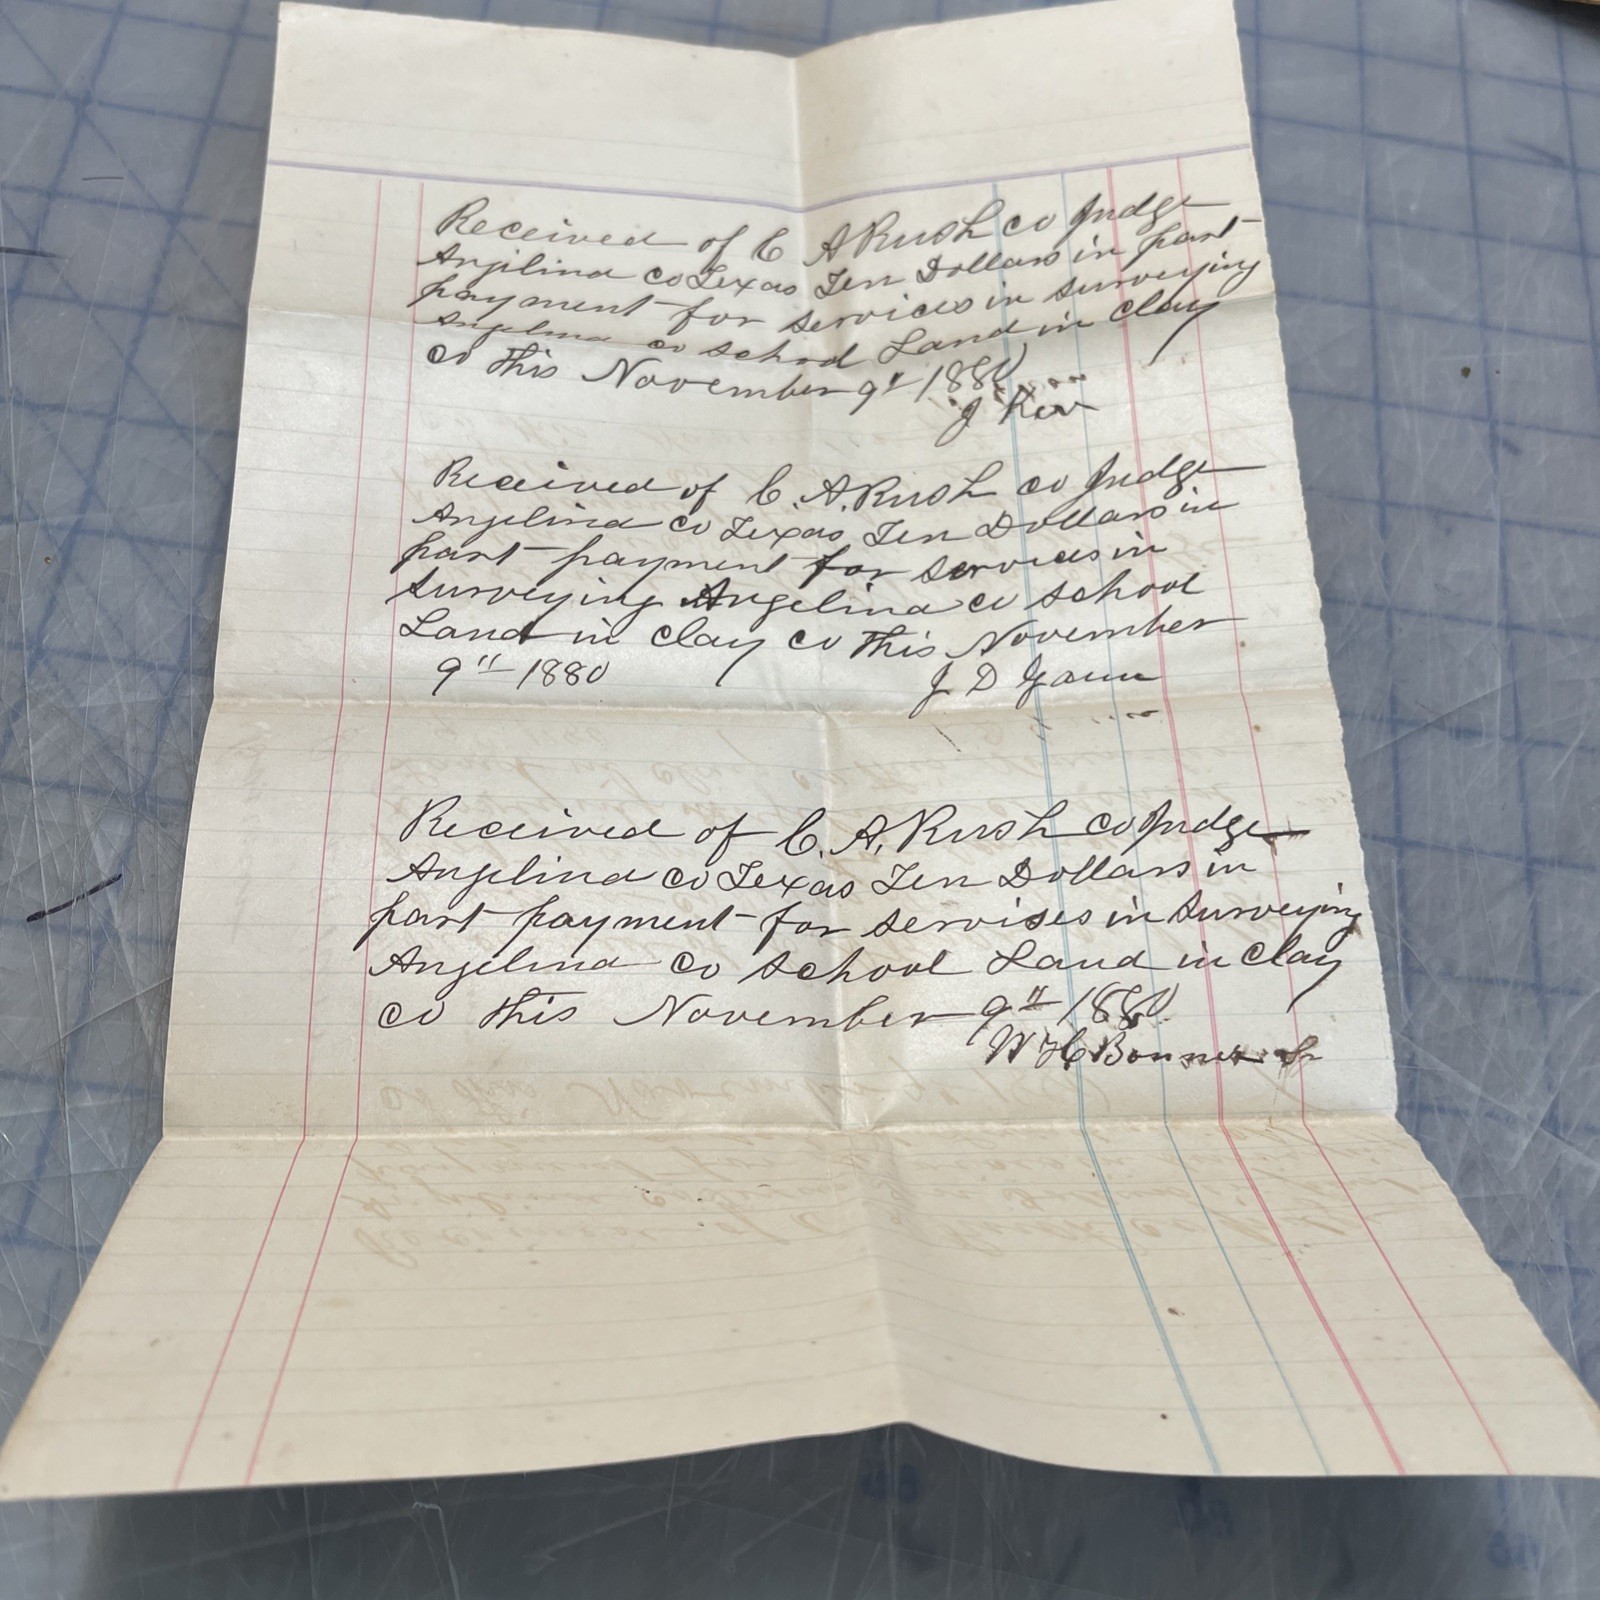 Received of C A Rush co Judge
Angilina co Texas Ten Dollars in part
payment for services in surveying
Angelina co school Land in Clay
co this November 9th 1880
J Kerr
Received of C. A. Rush co Judge
Angelina co Texas Ten Dollars in
part payment for services in
surveying Angelina co school
Land in Clay co this November
9th 1880
J D
Received of C. A. Rush co Judge
Angelina co Texas Ten Dollars in
part payment for servises in surveying
Angelina co school Land in Clay
co this November 9th 1880
W H Bonner Sr